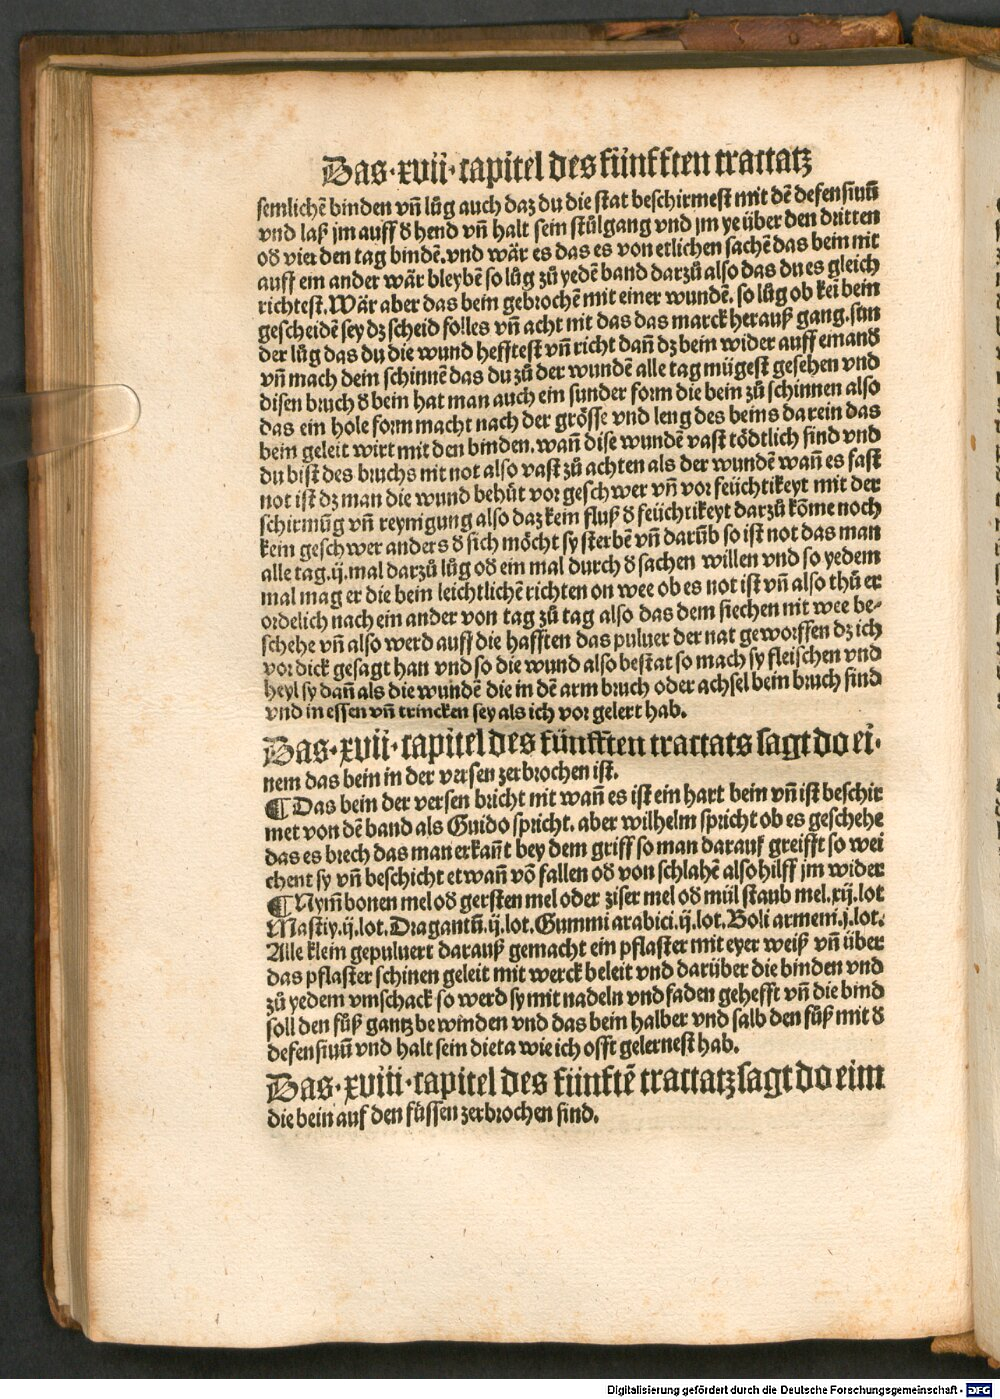 Das·xvii·capitel des fünfften tractatz
semlichē binden vñ lůg auch daz du die stat beschirmest mit dē defensiuū
vnd laß jm auff ð hend vñ halt sein stůlgang vnd jm ye über den dritten
oð vier den tag bindē.vnd wär es das es von etlichen sachē das bein nit
auff ein ander wär bleybē so lůg zů yedē band darzů also das du es gleich
richtest.Wär aber das bein gebrochē mit einer wundē.so lůg ob kei bein
gescheidē sey dz scheid folles vñ acht nit das das marck herauß gang.sun
der lůg das du die wund hefftest vñ richt dañ dz bein wider auff emanð
vñ mach dein schinnē das du zů der wundē alle tag mügest gesehen vnd
disen bruch ð bein hat man auch ein sunder form die bein zů schinnen also
das ein hole form macht nach der grösse vnd leng des beins darein das
bein geleit wirt mit den binden.wañ dise wundē vast tödtlich sind vnd
du bist des bruchs nit not also vast zů achten als der wundē wañ es fast
not ist dz man die wund behüt vor geschwer vñ vor feüchtikeyt mit der
schirmūg vñ reynigung also daz kein fluß ð feüchtikeyt darzů kōme noch
kein geschwer anders ð sich möcht sy sterbē vñ darūb so ist not das man
alle tag.ij.mal darzů lůg oð ein mal durch ð sachen willen vnd so yedem
mal mag er die bein leichtlichē richten on wee ob es not ist vñ also thů er
ordelich nach ein ander von tag zů tag also das dem siechen nit wee be⸗
schehe vñ also werd auff die hafften das puluer der nat geworffen dz ich
vor dick gesagt han vnd so die wund also bestat so mach sy fleischen vnd
heyl sy dañ als die wundē die in dē arm bruch oder achsel bein bruch sind
vnd in essen vñ trincken sey als ich vor gelert hab.
Das·xvii·capitel des fünfften tractats sagt do ei·
nem das bein in der versen zerbrochen ist.
¶Das bein der versen bricht nit wañ es ist ein hart bein vñ ist beschir
met von dē band als Guido spricht.aber wilhelm spricht ob es geschehe
das es brech das man erkañt bey dem griff so man darauf greifft so wei
chent sy vñ beschicht etwañ vō fallen oð von schlahē also hilff jm wider
¶Nym̄ bonen mel oð gersten mel oder ziser mel oð mül staub mel.xij.lot
Mastix.ij.lot.Dragantū.ij.lot.Gummi arabici.ij.lot.Boli armeni.j.lot.
Alle klein gepuluert darauß gemacht ein pflaster mit eyer weiß vñ über
das pflaster schinen geleit mit werck beleit vnd darüber die binden vnd
zů yedem vmschack so werd sy mit nadeln vnd faden gehefft vñ die bind
soll den fůß gantz bewinden vnd das bein halber vnd salb den fůß mit ð
defensiuū vnd halt sein dieta wie ich offt gelernest hab.
Das·xviii·capitel des fünftē tractatz sagt do eim
die bein auf den füssen zerbrochen sind.
Digitalisierung gefördert durch die Deutsche Forschungsgemeinschaft - DFG